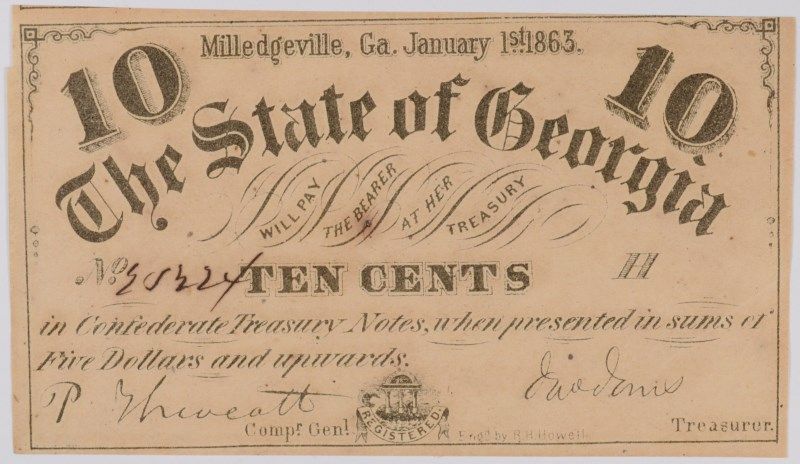 Milledgeville, Ga. January 1st. 1863.
10 10
The State of Georgia
WILL PAY THE BEARER AT HER TREASURY
No. TEN CENTS H
in Confederate Treasury Notes, when presented in sums of
Five Dollars and upwards.
P
REGISTERED
Compr. Genl. Engd. by R.H. Howell. Treasurer.